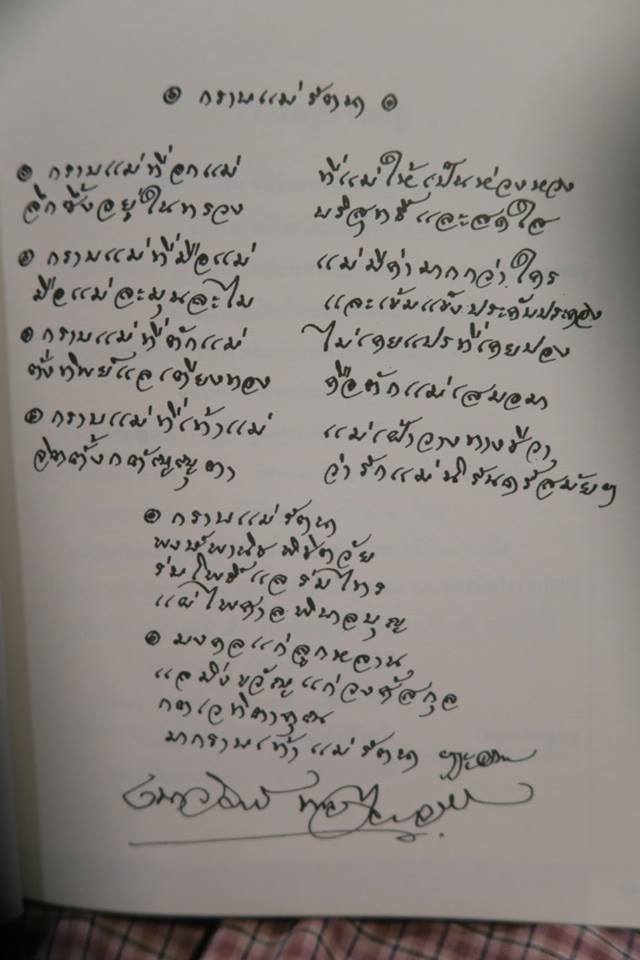 ๏ กราบแม่รัตนา ๏
๏ กราบแม่ที่อกแม่ ที่แม่ให้เป็นห่วงหวง
ลึกซึ้งอยู่ในทรวง บริสุทธิ์และสดใส
๏ กราบแม่ที่มือแม่ แม่มีค่ามากกว่าใคร
มือแม่ละมุนละไม และเข้มแข็งประคับประคอง
๏ กราบแม่ที่ตักแม่ ไม่เคยแปรที่เคยปอง
ตั่งทิพย์แลเตียงทอง คือตักแม่เสมอมา
๏ กราบแม่ที่เท้าแม่ แม่เฝ้าวางทางชีวา
จิตตั้งกตัญญุตา ว่ารักแม่นิรันดร์สมัยฯ
๏ กราบแม่รัตนา
พงษ์พานิช พิชิตวัย
ร่มโพธิ์แลร่มไทร
แผ่ไพศาลพิบูลบุญ
๏ มงคลแก่ลูกหลาน
แลมิ่งขวัญแก่วงศ์สกุล
กตเวทิตาคุณ
มากราบเท้าแม่รัตนา
เนาวรัตน์ พงษ์ไพบูลย์